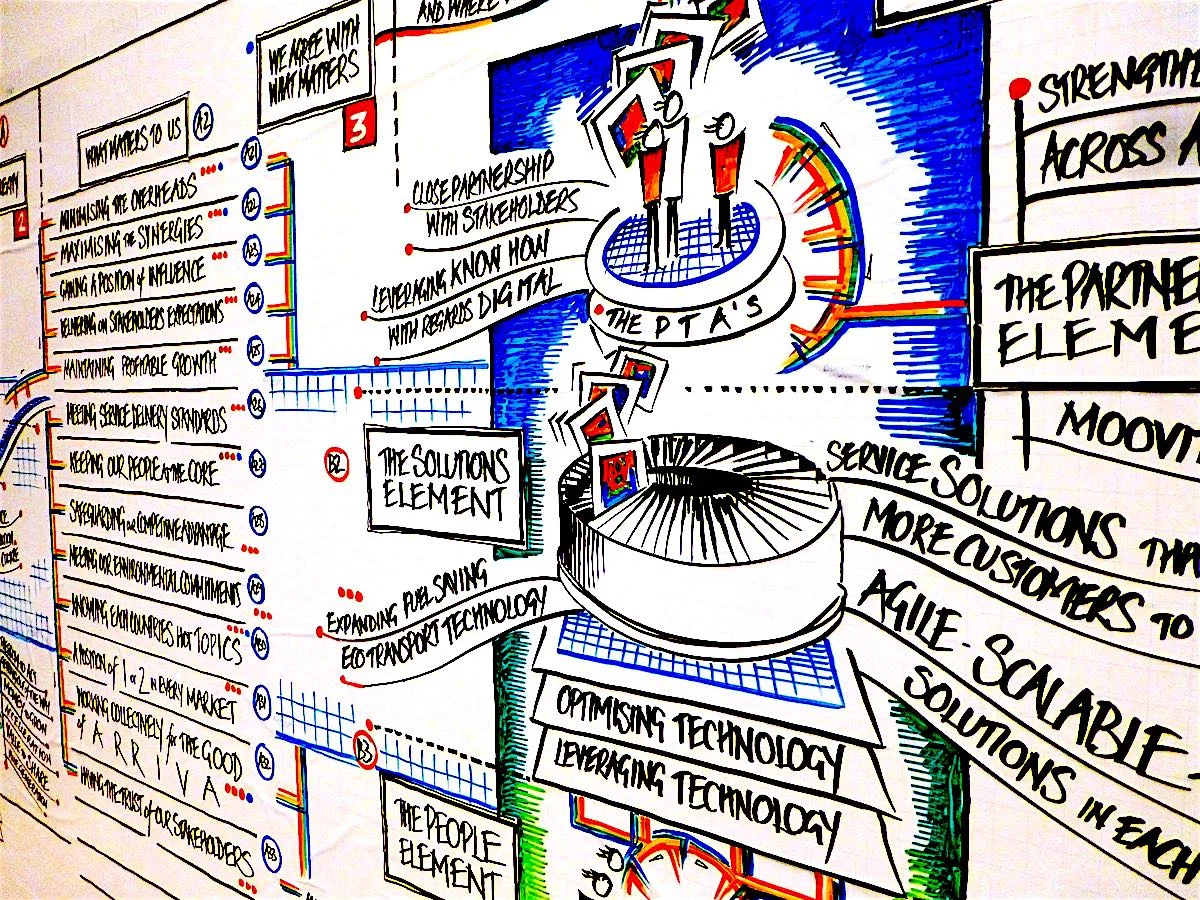 AND WHERE
WE AGREE WITH
WHAT MATTERS
3
WHAT MATTERS TO US
A2
2
MINIMISING THE OVERHEADS
MAXIMISING THE SYNERGIES
GAINING A POSITION of INFLUENCE
DELIVERING ON STAKEHOLDERS EXPECTATIONS
MAINTAINING PROFITABLE GROWTH
MEETING SERVICE DELIVERY STANDARDS
KEEPING OUR PEOPLE AT THE CORE
SAFEGUARDING OUR COMPETITIVE ADVANTAGE
MEETING OUR ENVIRONMENTAL COMMITMENTS
KNOWING EACH COUNTRIES HOT TOPICS
A POSITION of 1 or 2 IN EVERY MARKET
WORKING COLLECTIVELY for THE GOOD
of ARRIVA
HAVING THE TRUST of OUR STAKEHOLDERS
CLOSE PARTNERSHIP
WITH STAKEHOLDERS
LEVERAGING KNOW HOW
WITH REGARDS DIGITAL
THE PTA'S
STRENGTHE
ACROSS A
THE PARTNE
ELEME
MOOVT
B2
THE SOLUTIONS
ELEMENT
SERVICE SOLUTIONS THA
MORE CUSTOMERS TO
AGILE-SCALABLE-
SOLUTIONS IN EACH
EXPANDING FUEL SAVING
ECO TRANSPORT TECHNOLOGY
OPTIMISING TECHNOLOGY
LEVERAGING TECHNOLOGY
B3
THE PEOPLE
ELEMENT